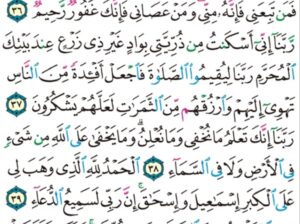 فَمَن تَبِعَنِي فَإِنَّهُۥ مِنِّي وَمَنْ عَصَانِي فَإِنَّكَ غَفُورٌ رَّحِيمٌ ٣٦
رَّبَّنَآ إِنِّيٓ أَسْكَنتُ مِن ذُرِّيَّتِي بِوَادٍ غَيْرِ ذِي زَرْعٍ عِندَ بَيْتِكَ
ٱلْمُحَرَّمِ رَبَّنَا لِيُقِيمُوا۟ ٱلصَّلَوٰةَ فَٱجْعَلْ أَفْـِٔدَةً مِّنَ ٱلنَّاسِ
تَهْوِيٓ إِلَيْهِمْ وَٱرْزُقْهُم مِّنَ ٱلثَّمَرَٰتِ لَعَلَّهُمْ يَشْكُرُونَ ٣٧
رَبَّنَآ إِنَّكَ تَعْلَمُ مَا نُخْفِي وَمَا نُعْلِنُ وَمَا يَخْفَىٰ عَلَى ٱللَّهِ مِن شَيْءٍ
فِي ٱلْأَرْضِ وَلَا فِي ٱلسَّمَآءِ ٣٨ ٱلْحَمْدُ لِلَّهِ ٱلَّذِي وَهَبَ لِي
عَلَى ٱلْكِبَرِ إِسْمَٰعِيلَ وَإِسْحَٰقَ إِنَّ رَبِّي لَسَمِيعُ ٱلدُّعَآءِ ٣٩